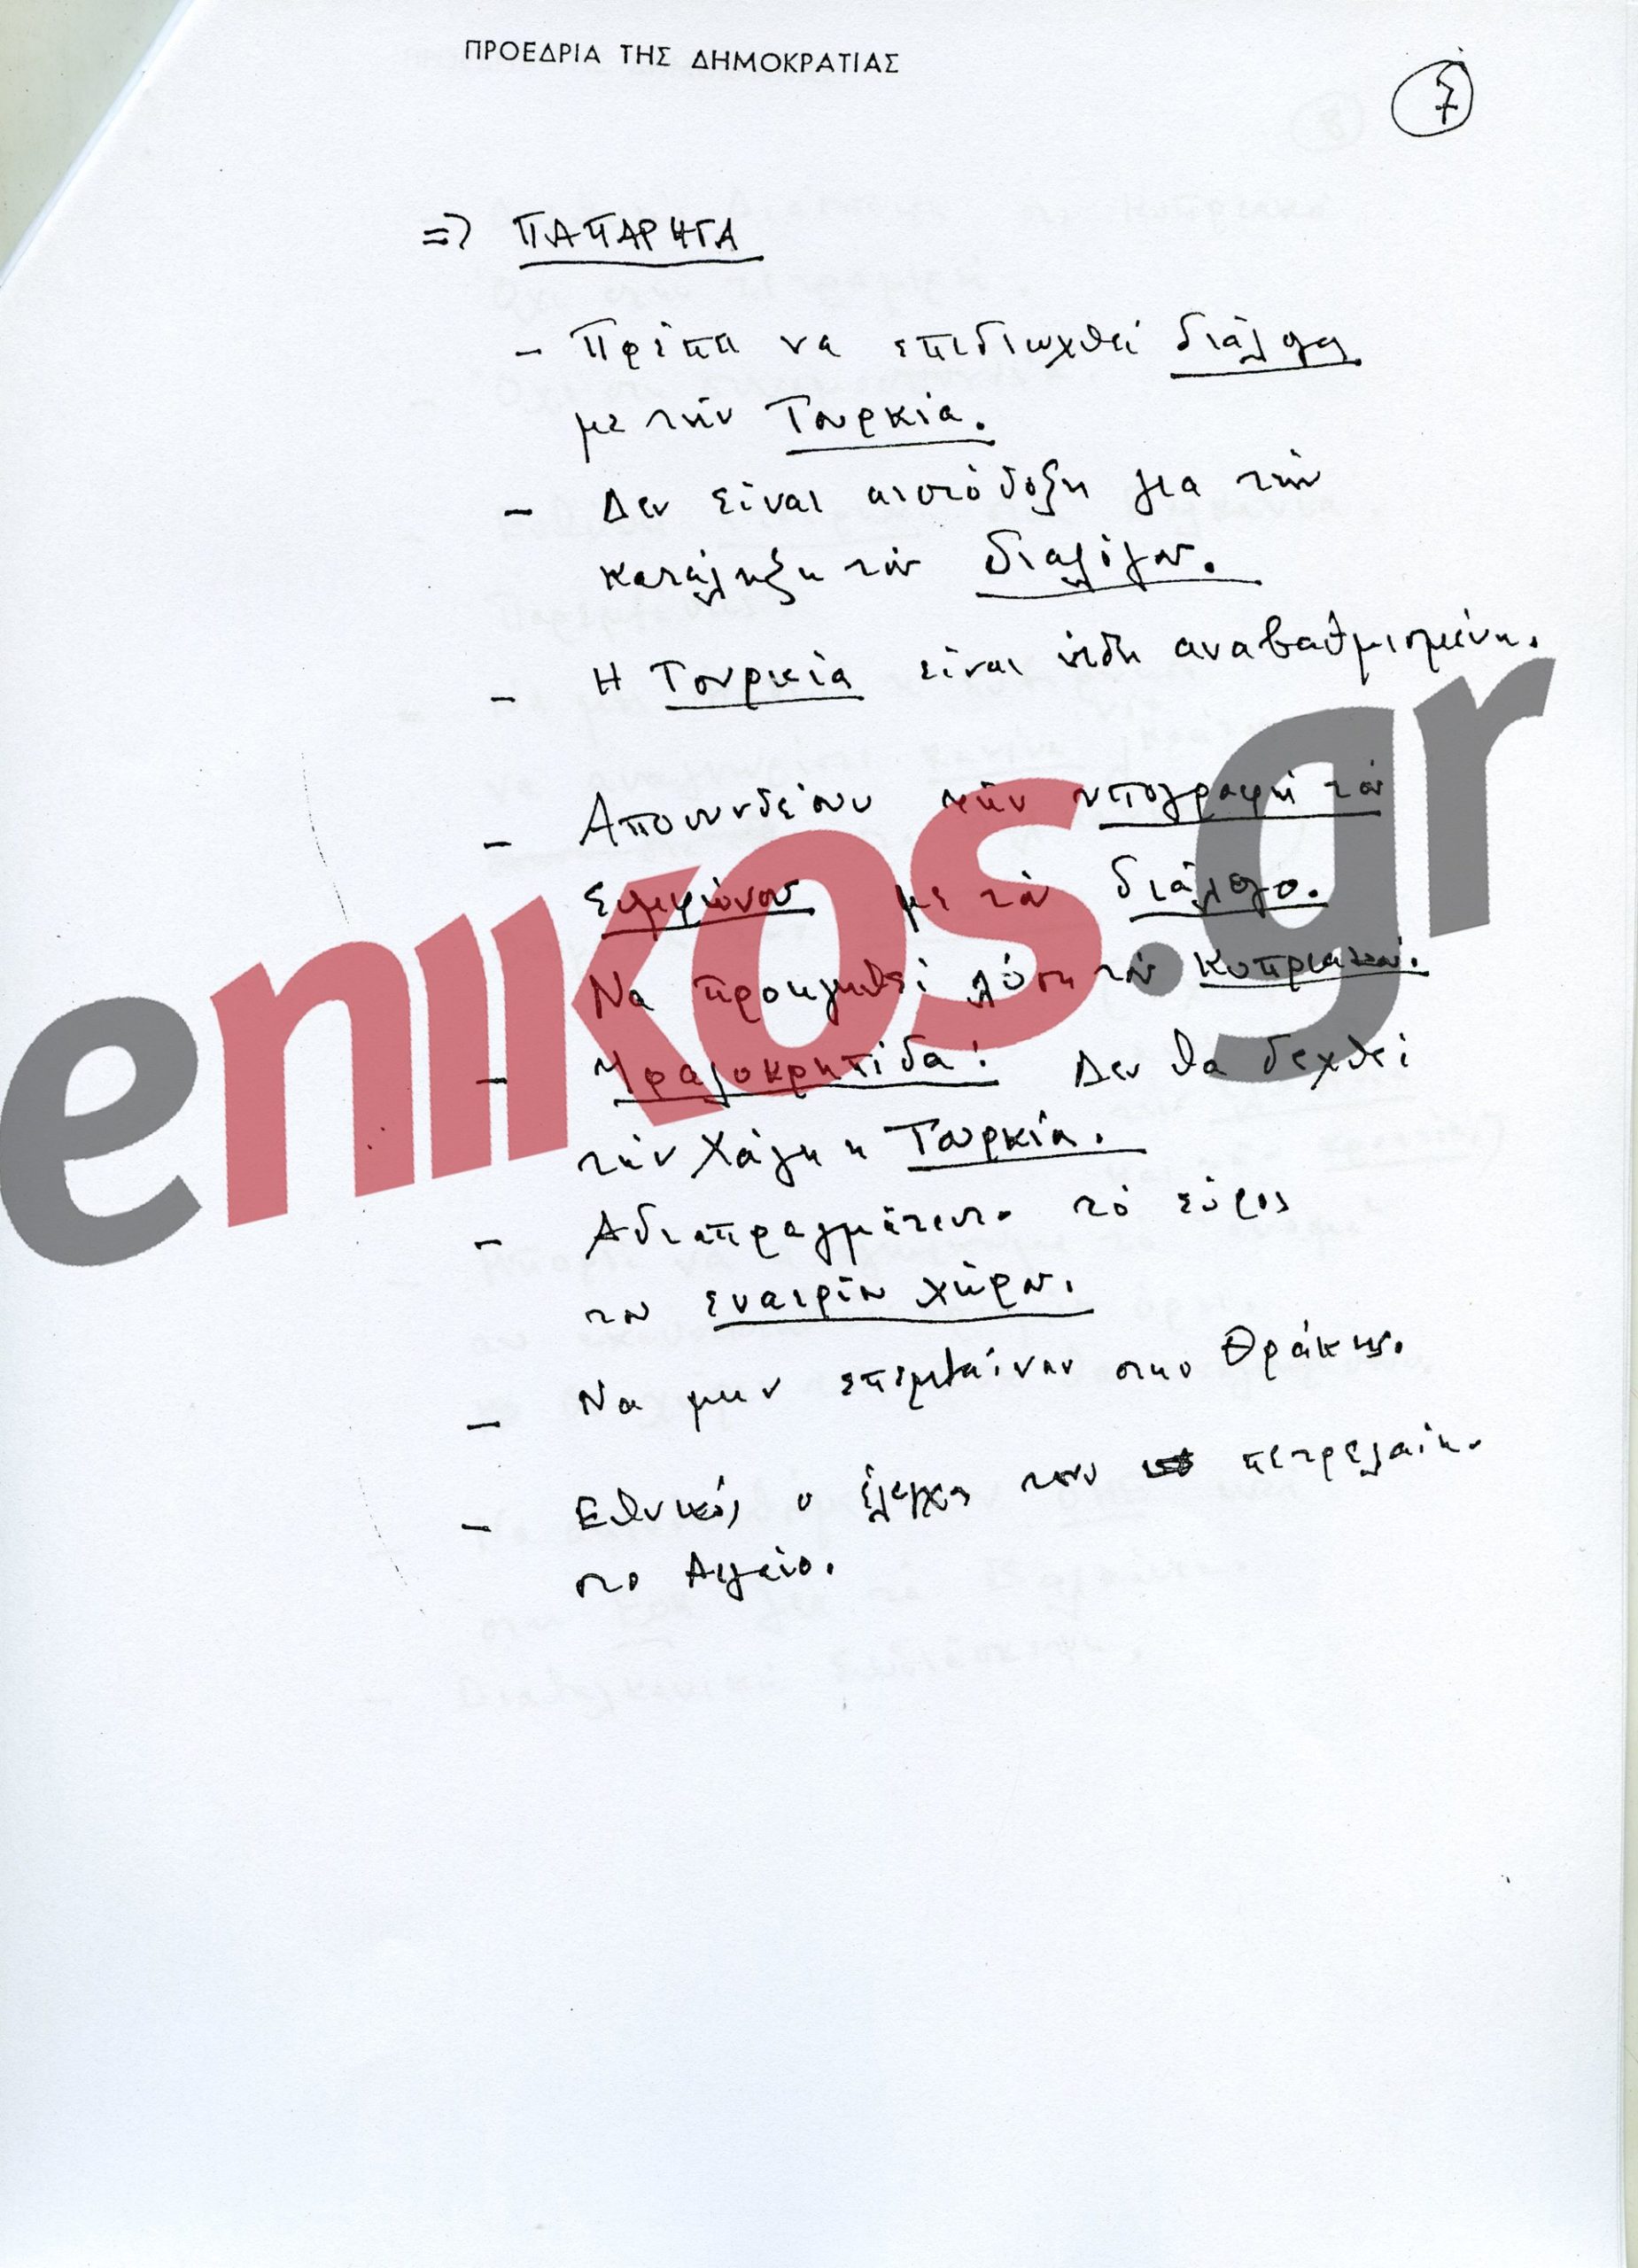 ΠΡΟΕΔΡΙΑ ΤΗΣ ΔΗΜΟΚΡΑΤΙΑΣ
7
=> ΠΑΠΑΡΗΓΑ
- Πρέπει να επιδιωχθεί διάλογος
με την Τουρκία.
- Δεν είναι αισιόδοξη για την
κατάληξη του διαλόγου.
- Η Τουρκία είναι ήδη αναβαθμισμένη.
- Αποσυνδέουν την υπογραφή του
Συμφώνου με το διάλογο.
Να προηγηθεί λύση του Κυπριακού.
- Υφαλοκρηπίδα! Δεν θα δεχθεί
την Χάγη η Τουρκία.
- Αδιαπραγμάτευτο το εύρος
του εναερίου χώρου.
- Να μην επεμβαίνουν στην Θράκη.
- Εθνικός ο έλεγχος των πετρελαίων
στο Αιγαίο.
enikos.gr